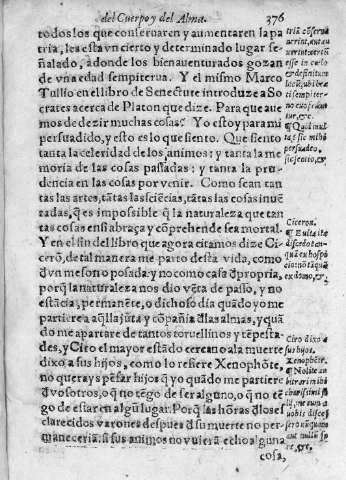 del Cuerpo y del Alma. 376
todos los que conseruaren y aumentaren la pa
tria, les esta vn cierto y determinado lugar se
ñalado, adonde los bienauenturados gozan
de vna edad sempiterua. Y el mismo Marco
Tullio en el libro de Senectute introduze a So
crates acerca de Platon que dize. Para que aue
mos de dezir muchas cosas. Yo estoy para mi
persuadido, y esto es lo que siento. Que siento
tanta la celeridad de los animos: y tanta la me
moria de las cosas passadas: y tanta la pru-
dencia en las cosas por venir. Como sean tan
tas las artes, tãtas las sciẽcias, tãtas las cosas inuẽ
tadas, q̃ es impossible q̃ la naturaleza que tan
tas cosas en si abraça y cõprehende sea mortal.
Y en el fin del libro que agora citamos dize Ci
cerõ, de tal manera me parto desta vida, como
d̃ vn meson o posada, y no como casa d̃ propria,
porq̃ la naturaleza nos dio vẽta de passo, y no
estãcia, permanẽte, o dichoso dia quãdo yo me
partiere a aq̃lla jũta y cõpañia d̃ las almas, y quã
do me apartare de tantos toruellinos y tẽpesta-
des, y Ciro el mayor estãdo cercano a la muerte
dixo a sus hijos, como lo refiere Xenophõte,
no querays pẽsar hijos q̃ yo quãdo me partiere
d̃ vosotros, o q̃ no tẽgo de ser alguno, o q̃ no tẽ
go de estar en algũ lugar. Porq̃ las hõras d̃ los es
clarecidos varones despues d̃ su muerte no per-
maneceriã, si sus animos no vuierã echo alguna
cosa,
tria cõserua
esse in cælo
ac definitum
Ciceron.
Ciro dixo a
sus hijos.
Xenophõte.